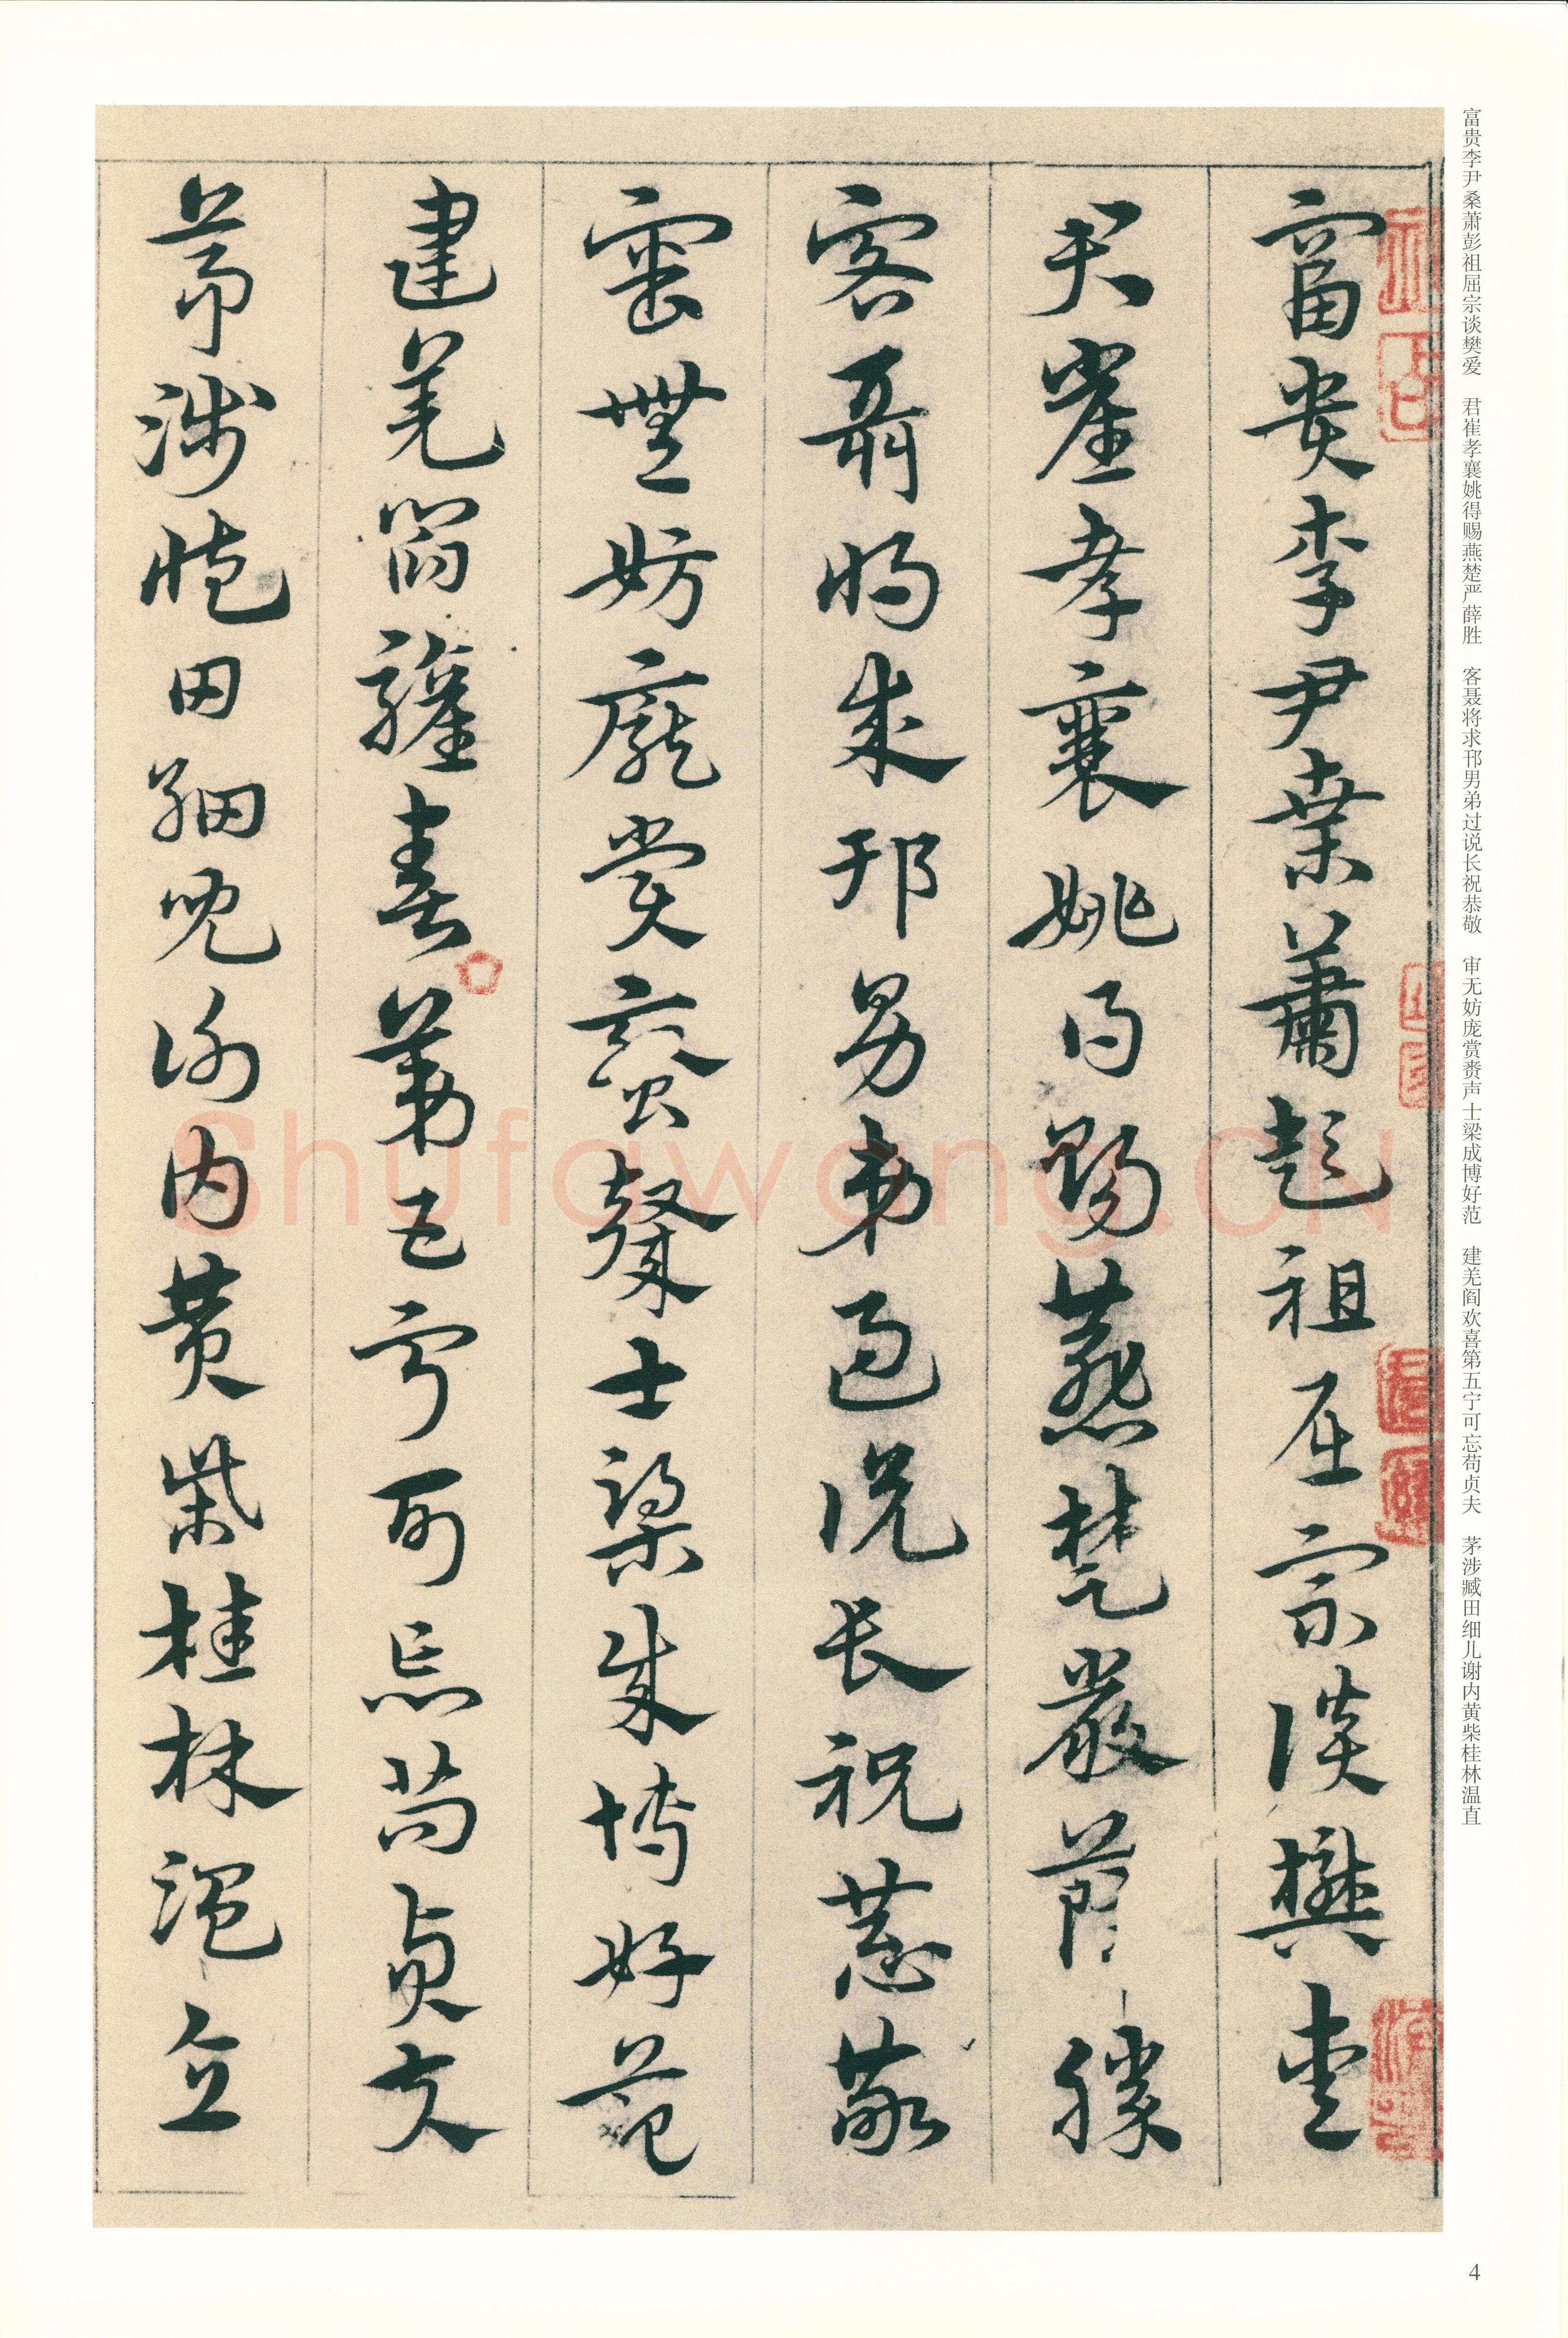 富贵李尹桑萧彭祖屈宗谈樊爱　君崔孝襄姚得赐燕楚严薛胜　客聂将求邘男弟过说长祝恭敬　审无妨庞赏声士梁成博好范　建羌阎欢喜第五宁可忘苟贞夫　茅涉臧田细儿谢内黄柴桂林温直
富貴李尹桑蕭彭祖屈宗談樊愛
君崔孝襄姚得賜燕楚嚴薛勝
客聶將求邘男弟過說長祝恭敬
審無妨龐賞士梁成博好范
建羌閻驩喜第五寧可忘苟貞夫
茅涉臧田細兒謝內黃柴桂林溫直
Shufawang.CN
4